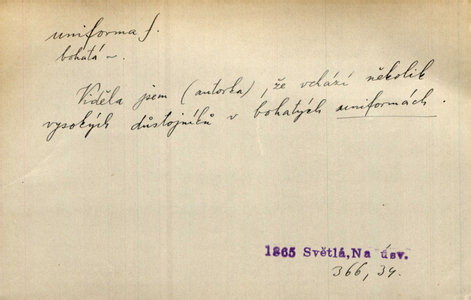 uniforma f.
bohatá –.
Viděla jsem (autorka), že vchází několik
vysokých důstojníků v bohatých uniformách.
1865 Světlá, Na úsv.
366, 39.